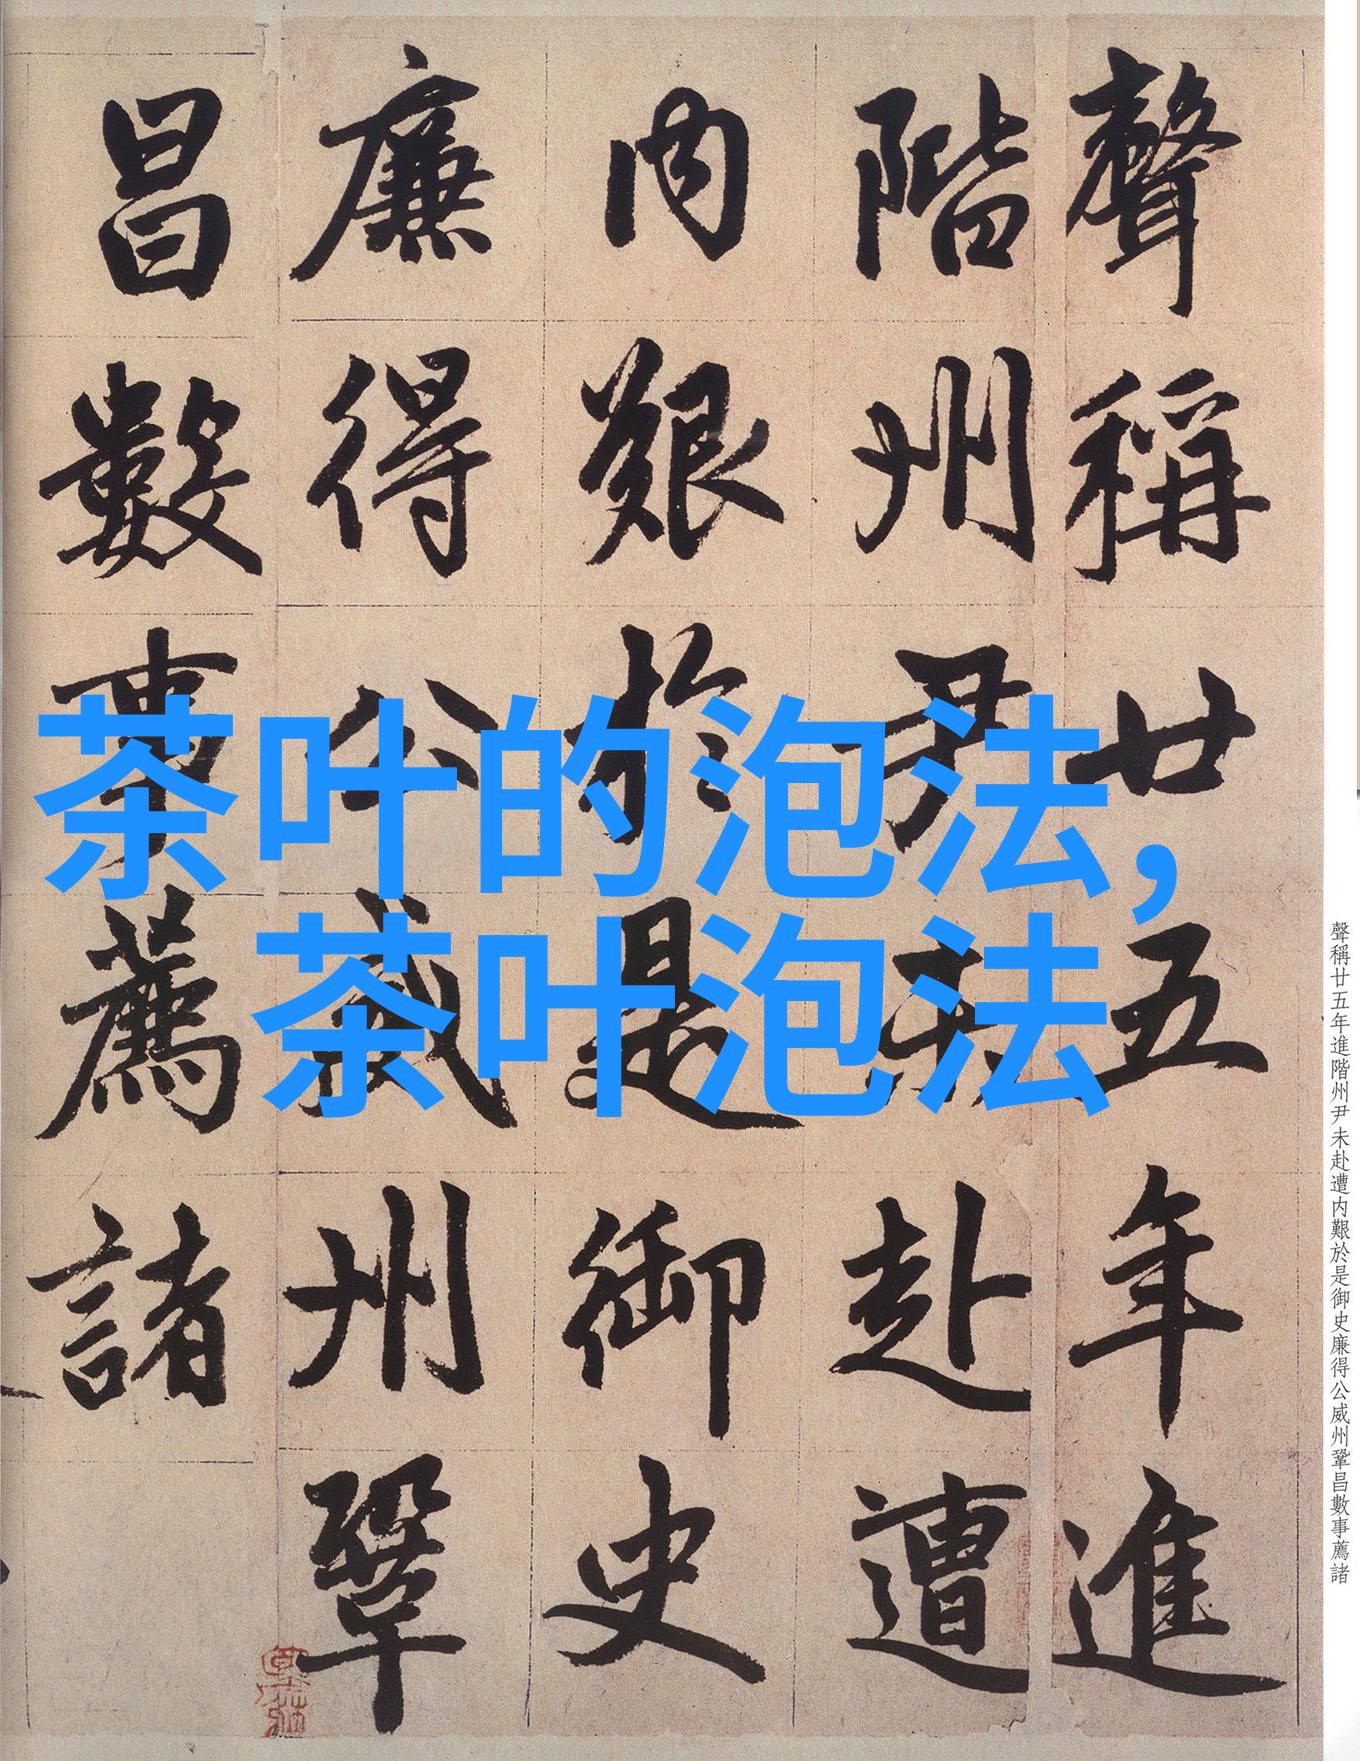 聲稱廿五年進
階州尹未赴遭
内艱於是御史
廉得公威州鞏
昌數事薦諸
茶叶的泡法，
茶叶泡法
聲稱廿五年進階州尹未赴遭内艱於是御史廉得公威州鞏昌數事薦諸